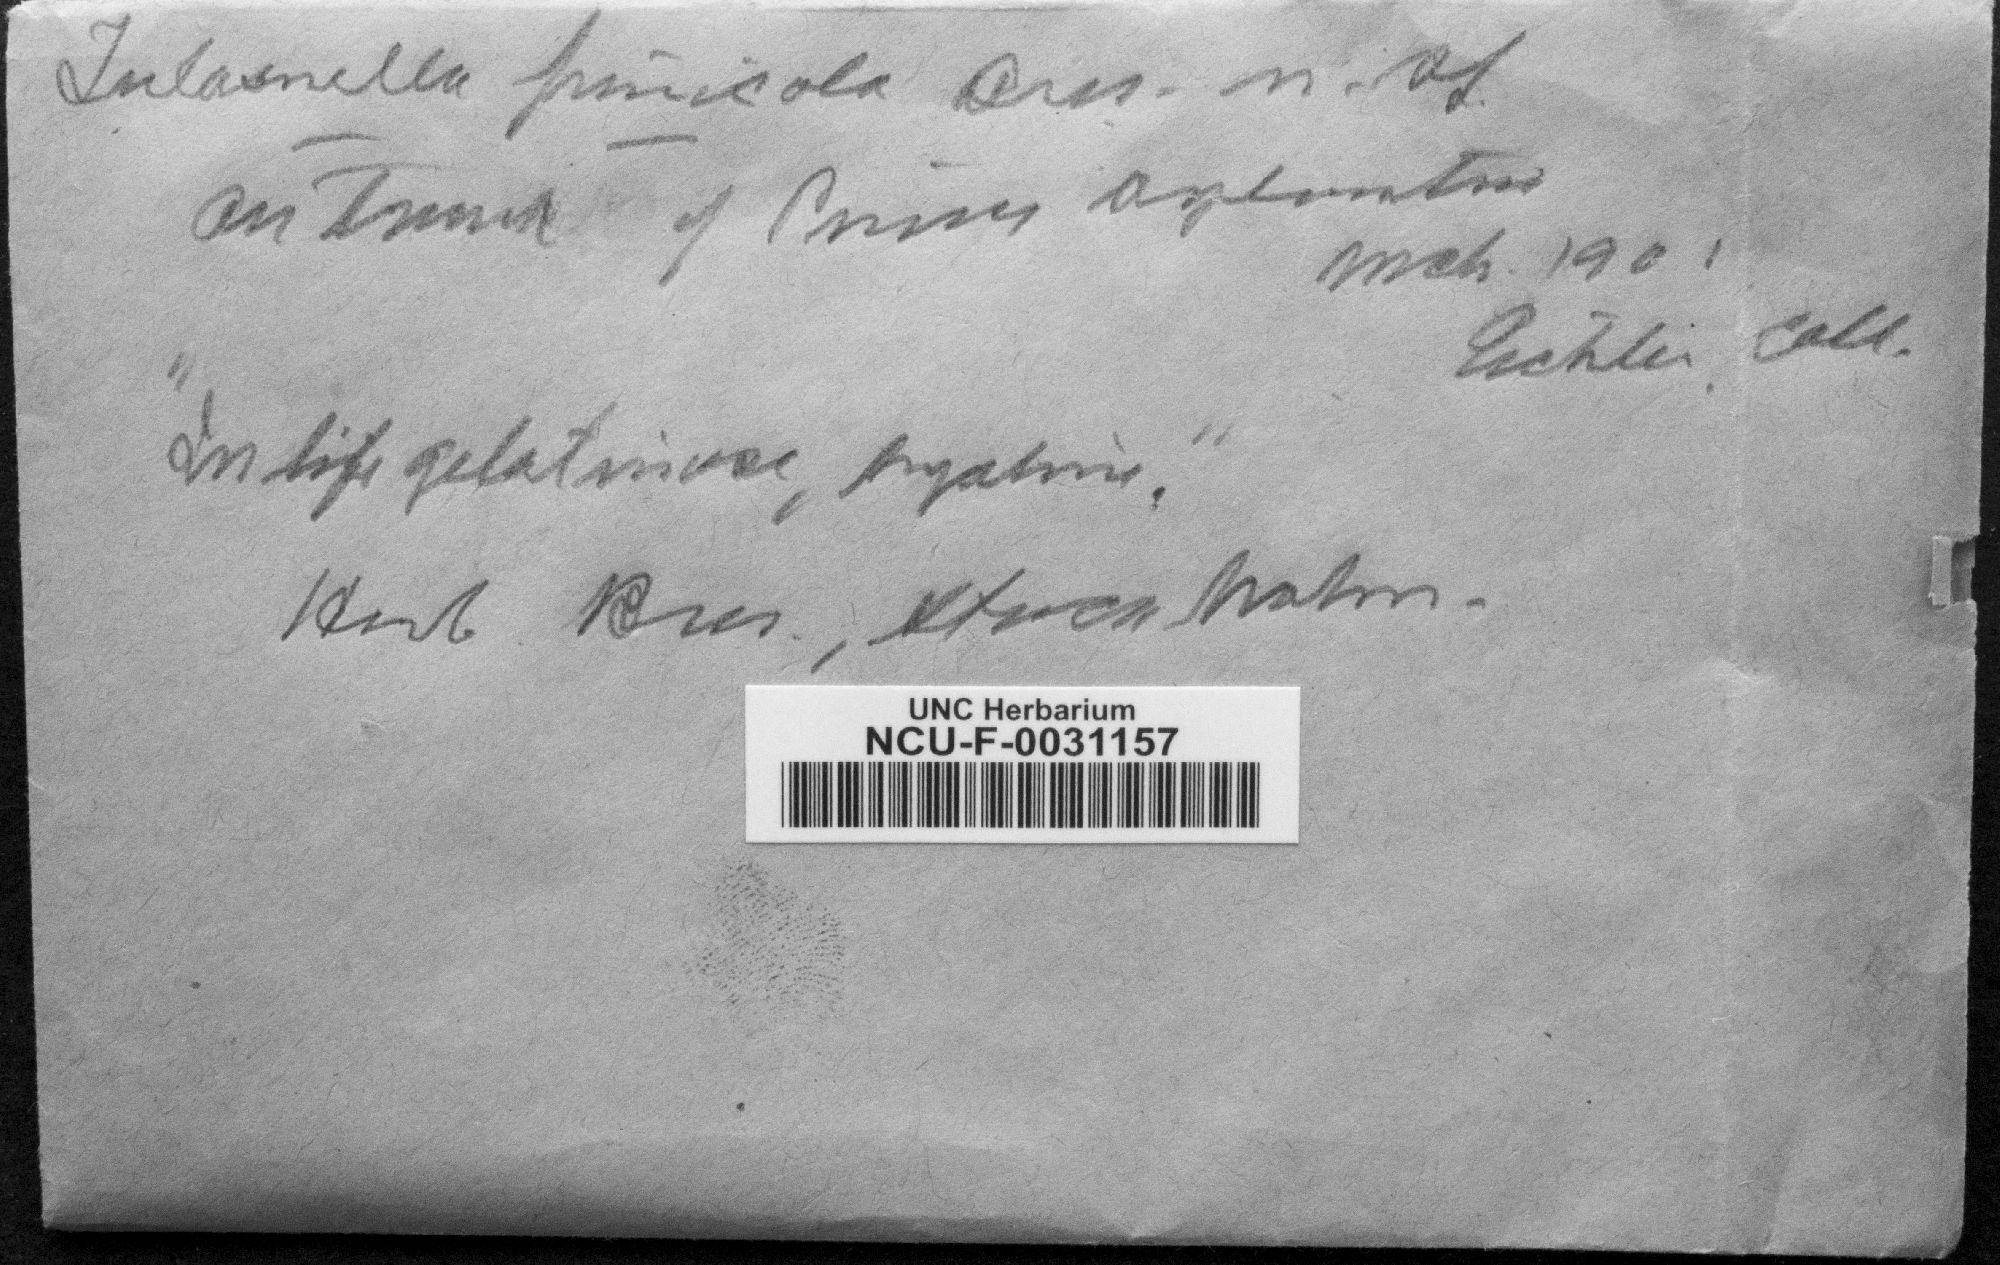 Tulasnella pinicola Bres. n. sp.
on Trunk of Pinus sylvestris
Mch. 1901
Eichler, Coll.
"In life gelatinose, hyaline."
Herb Bres., Stockholm.
UNC Herbarium
NCU-F-0031157